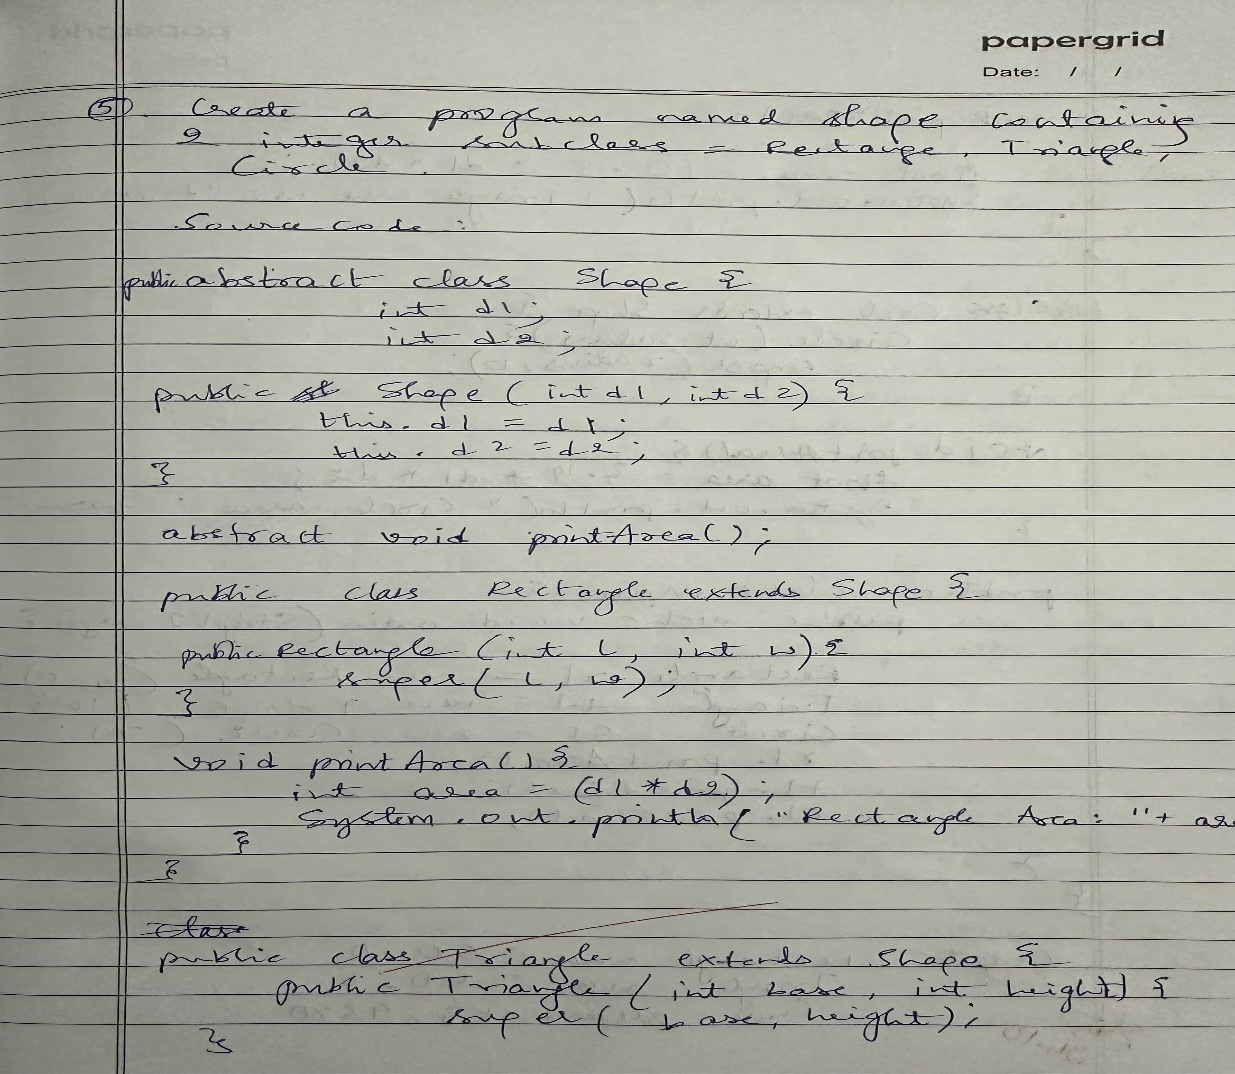 papergrid
Date: / /
⑤ Create a program named shape containing
2 integer subclass = Rectange, Triangle,
Circle.
Source code :
public abstract class Shape {
int d1;
int d2;
public Shape (int d1, int d2) {
this.d1 = d1;
this.d2 = d2;
}
abstract void printArea();
public class Rectangle extends Shape {
public Rectangle (int L, int w) {
super(L, w);
}
void printArea() {
int area = (d1 * d2);
System.out.println("Rectangle Area: "+ ar
}
}
public class Triangle extends Shape {
public Triangle (int base, int height) {
super( base, height);
}